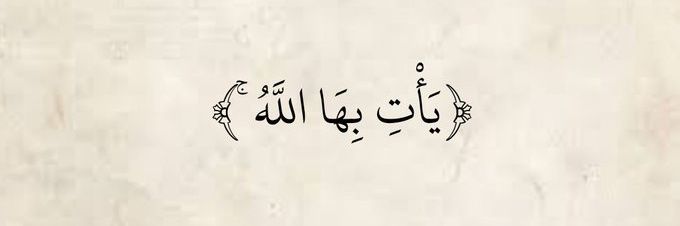 ﴿ يَأْتِ بِهَا اللَّهُ ۚ ﴾